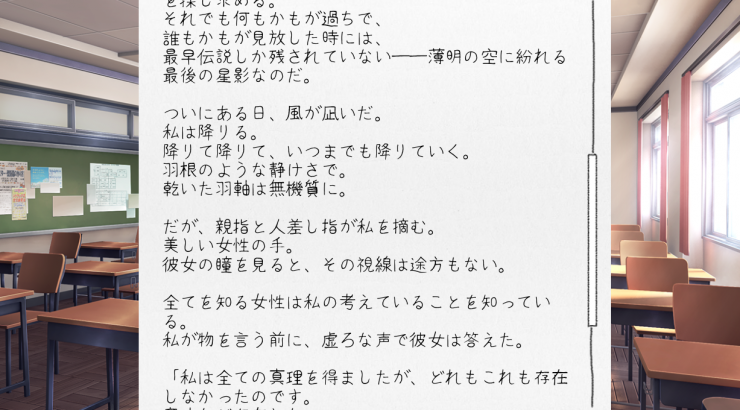 を探し求める。
それでも何もかもが過ちで、
誰もかもが見放した時には、
最早伝説しか残されていない――薄明の空に紛れる
最後の星影なのだ。
ついにある日、風が凪いだ。
私は降りる。
降りて降りて、いつまでも降りていく。
羽根のような静けさで。
乾いた羽軸は無機質に。
だが、親指と人差し指が私を摘む。
美しい女性の手。
彼女の瞳を見ると、その視線は途方もない。
全てを知る女性は私の考えていることを知ってい
る。
私が物を言う前に、虚ろな声で彼女は答えた。
「私は全ての真理を得ましたが、どれもこれも存在
しなかったのです。